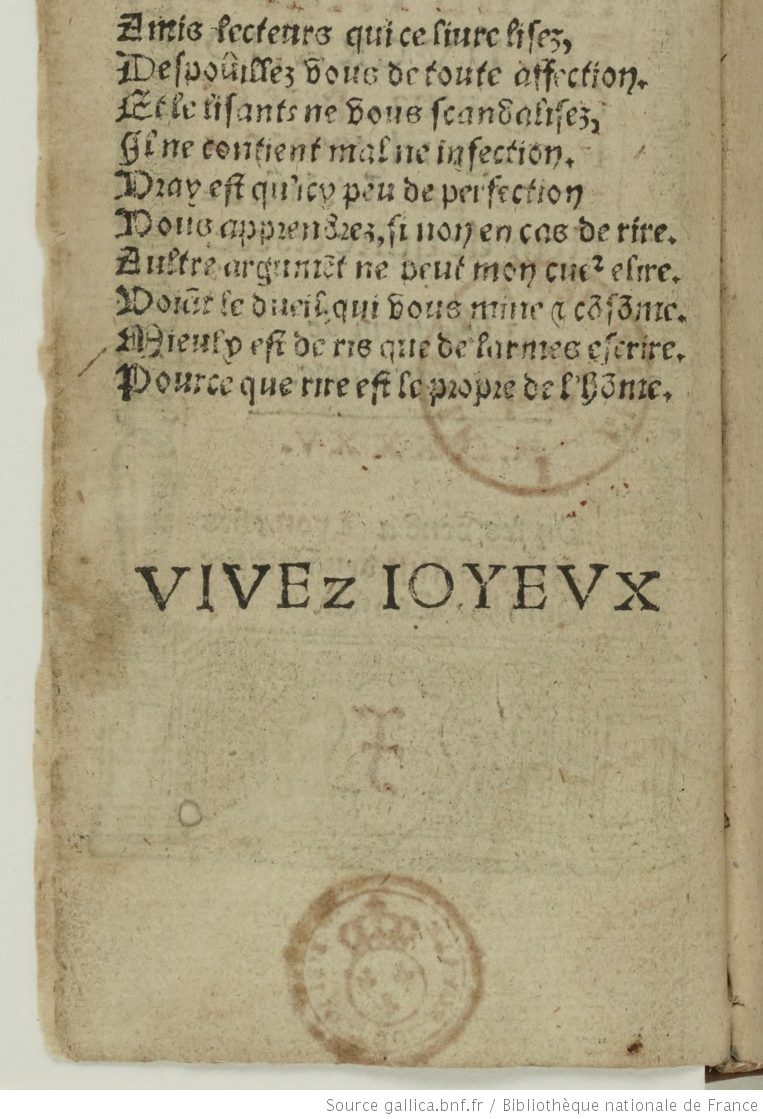 Amis lecteurs qui ce liure lisez,
Despouillez vous de toute affection.
Et le lisants ne vous scandalisez,
Il ne contient mal ne infection.
Vray est qu'icy peu de perfection
Vous apprendrez, si non en cas de rire.
Aultre argumēt ne peut mon cueꝛ elire.
Voiāt le dueil, qui vous mine & cōsōme.
Mieulx est de ris que de larmes escrire.
Pource que rire est le propre de l'hōme.
VIVEz IOYEVX
Source gallica.bnf.fr / Bibliothèque nationale de France